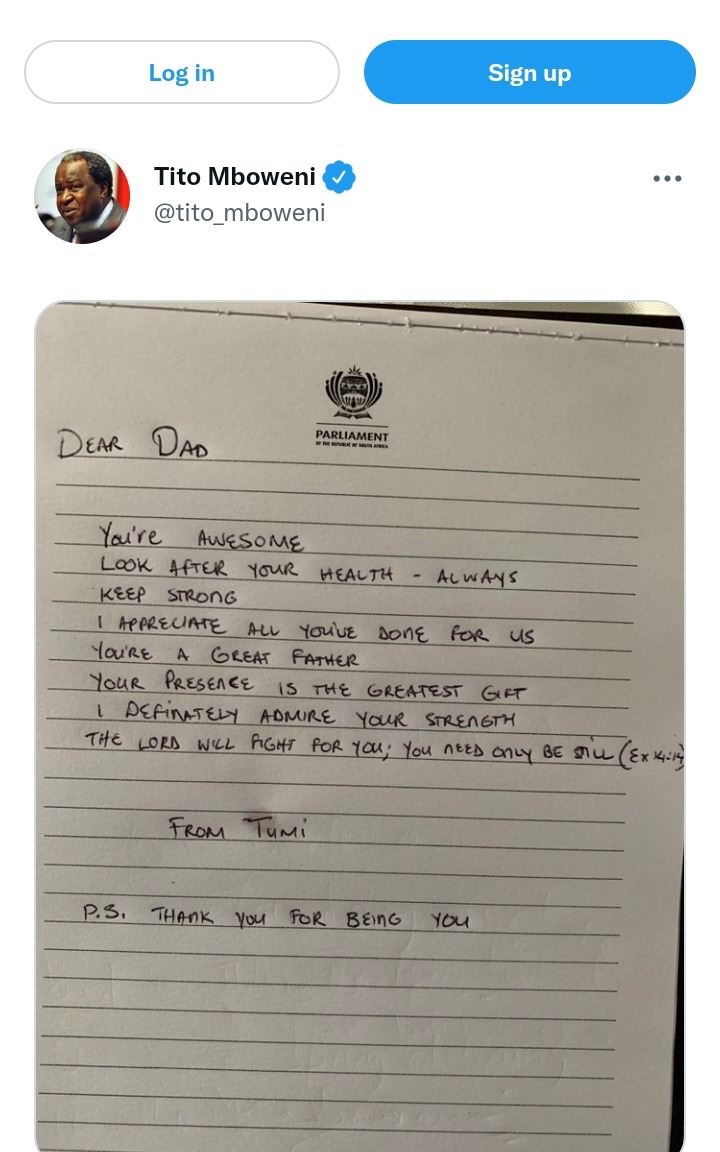 Log in
Sign up
Tito Mboweni
@tito_mboweni
PARLIAMENT
OF THE REPUBLIC OF SOUTH AFRICA
DEAR DAD
You're AWESOME
LOOK AFTER YOUR HEALTH - ALWAYS
KEEP STRONG
I APPRECIATE ALL YOU'VE DONE FOR US
YOU'RE A GREAT FATHER
YOUR PRESENCE IS THE GREATEST GIFT
I DEFINATELY ADMIRE YOUR STRENGTH
THE LORD WILL FIGHT FOR YOU; YOU NEED ONLY BE STILL (Ex 14:14)
FROM TUMI
P.S. THANK YOU FOR BEING YOU